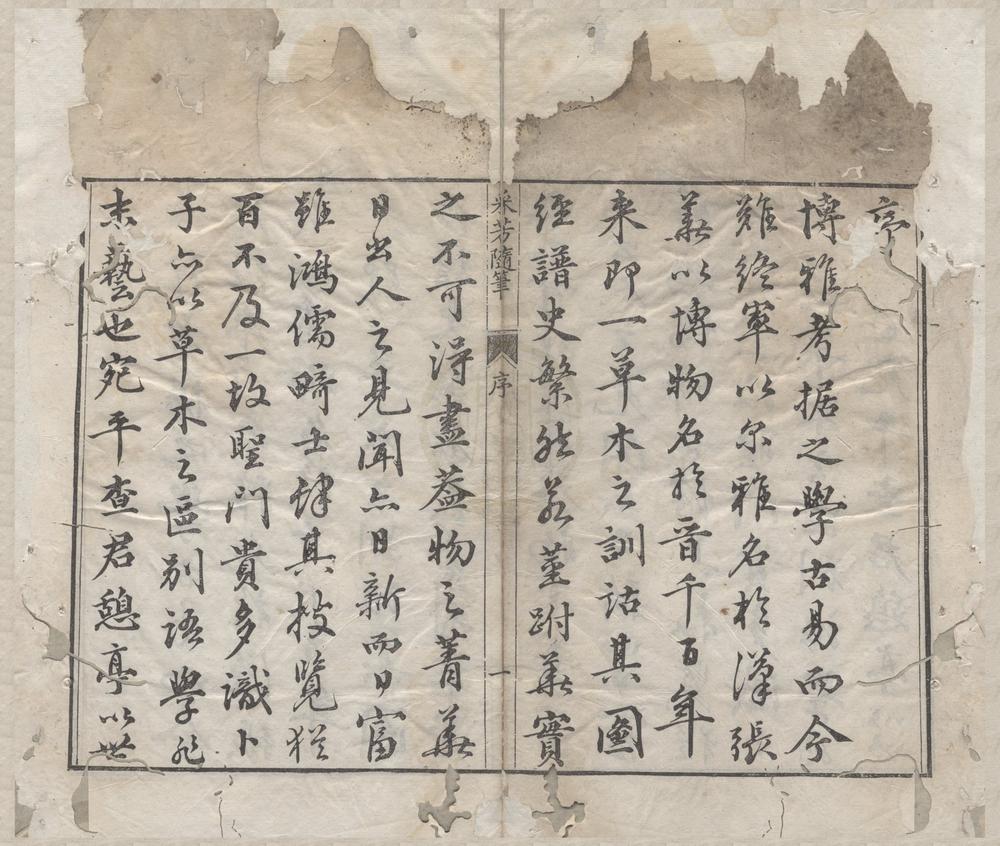 序
博雅考据之學古易而今
難終軍以尔雅名於漢張
華以博物名於晉千百年
来即一草木之訓詁其圖
經譜史繁然若莖跗華實
采芳隨筆
序
一
之不可淂盡葢物之菁華
日出人之見聞亦日新而日富
雖鴻儒畸士肆其披覽猶
百不及一故聖門貴多識卜
子亦以草木之區别語學
末藝也宛平查君憩亭以世